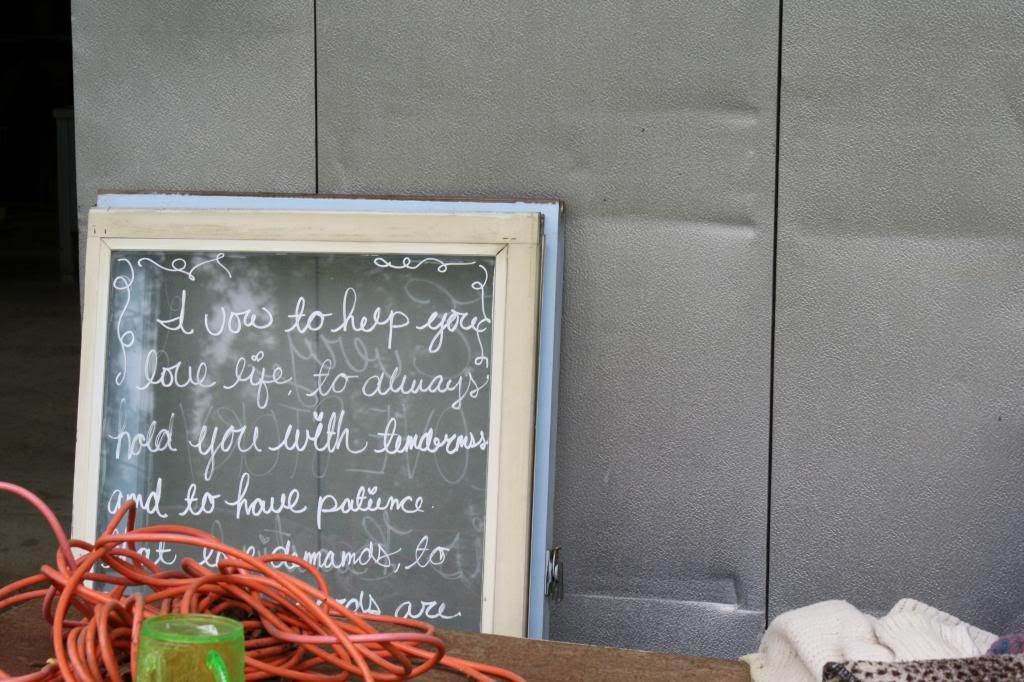 I vow to help you
love life, to always
hold you with tenderness
and to have patience
that love demands, to
are